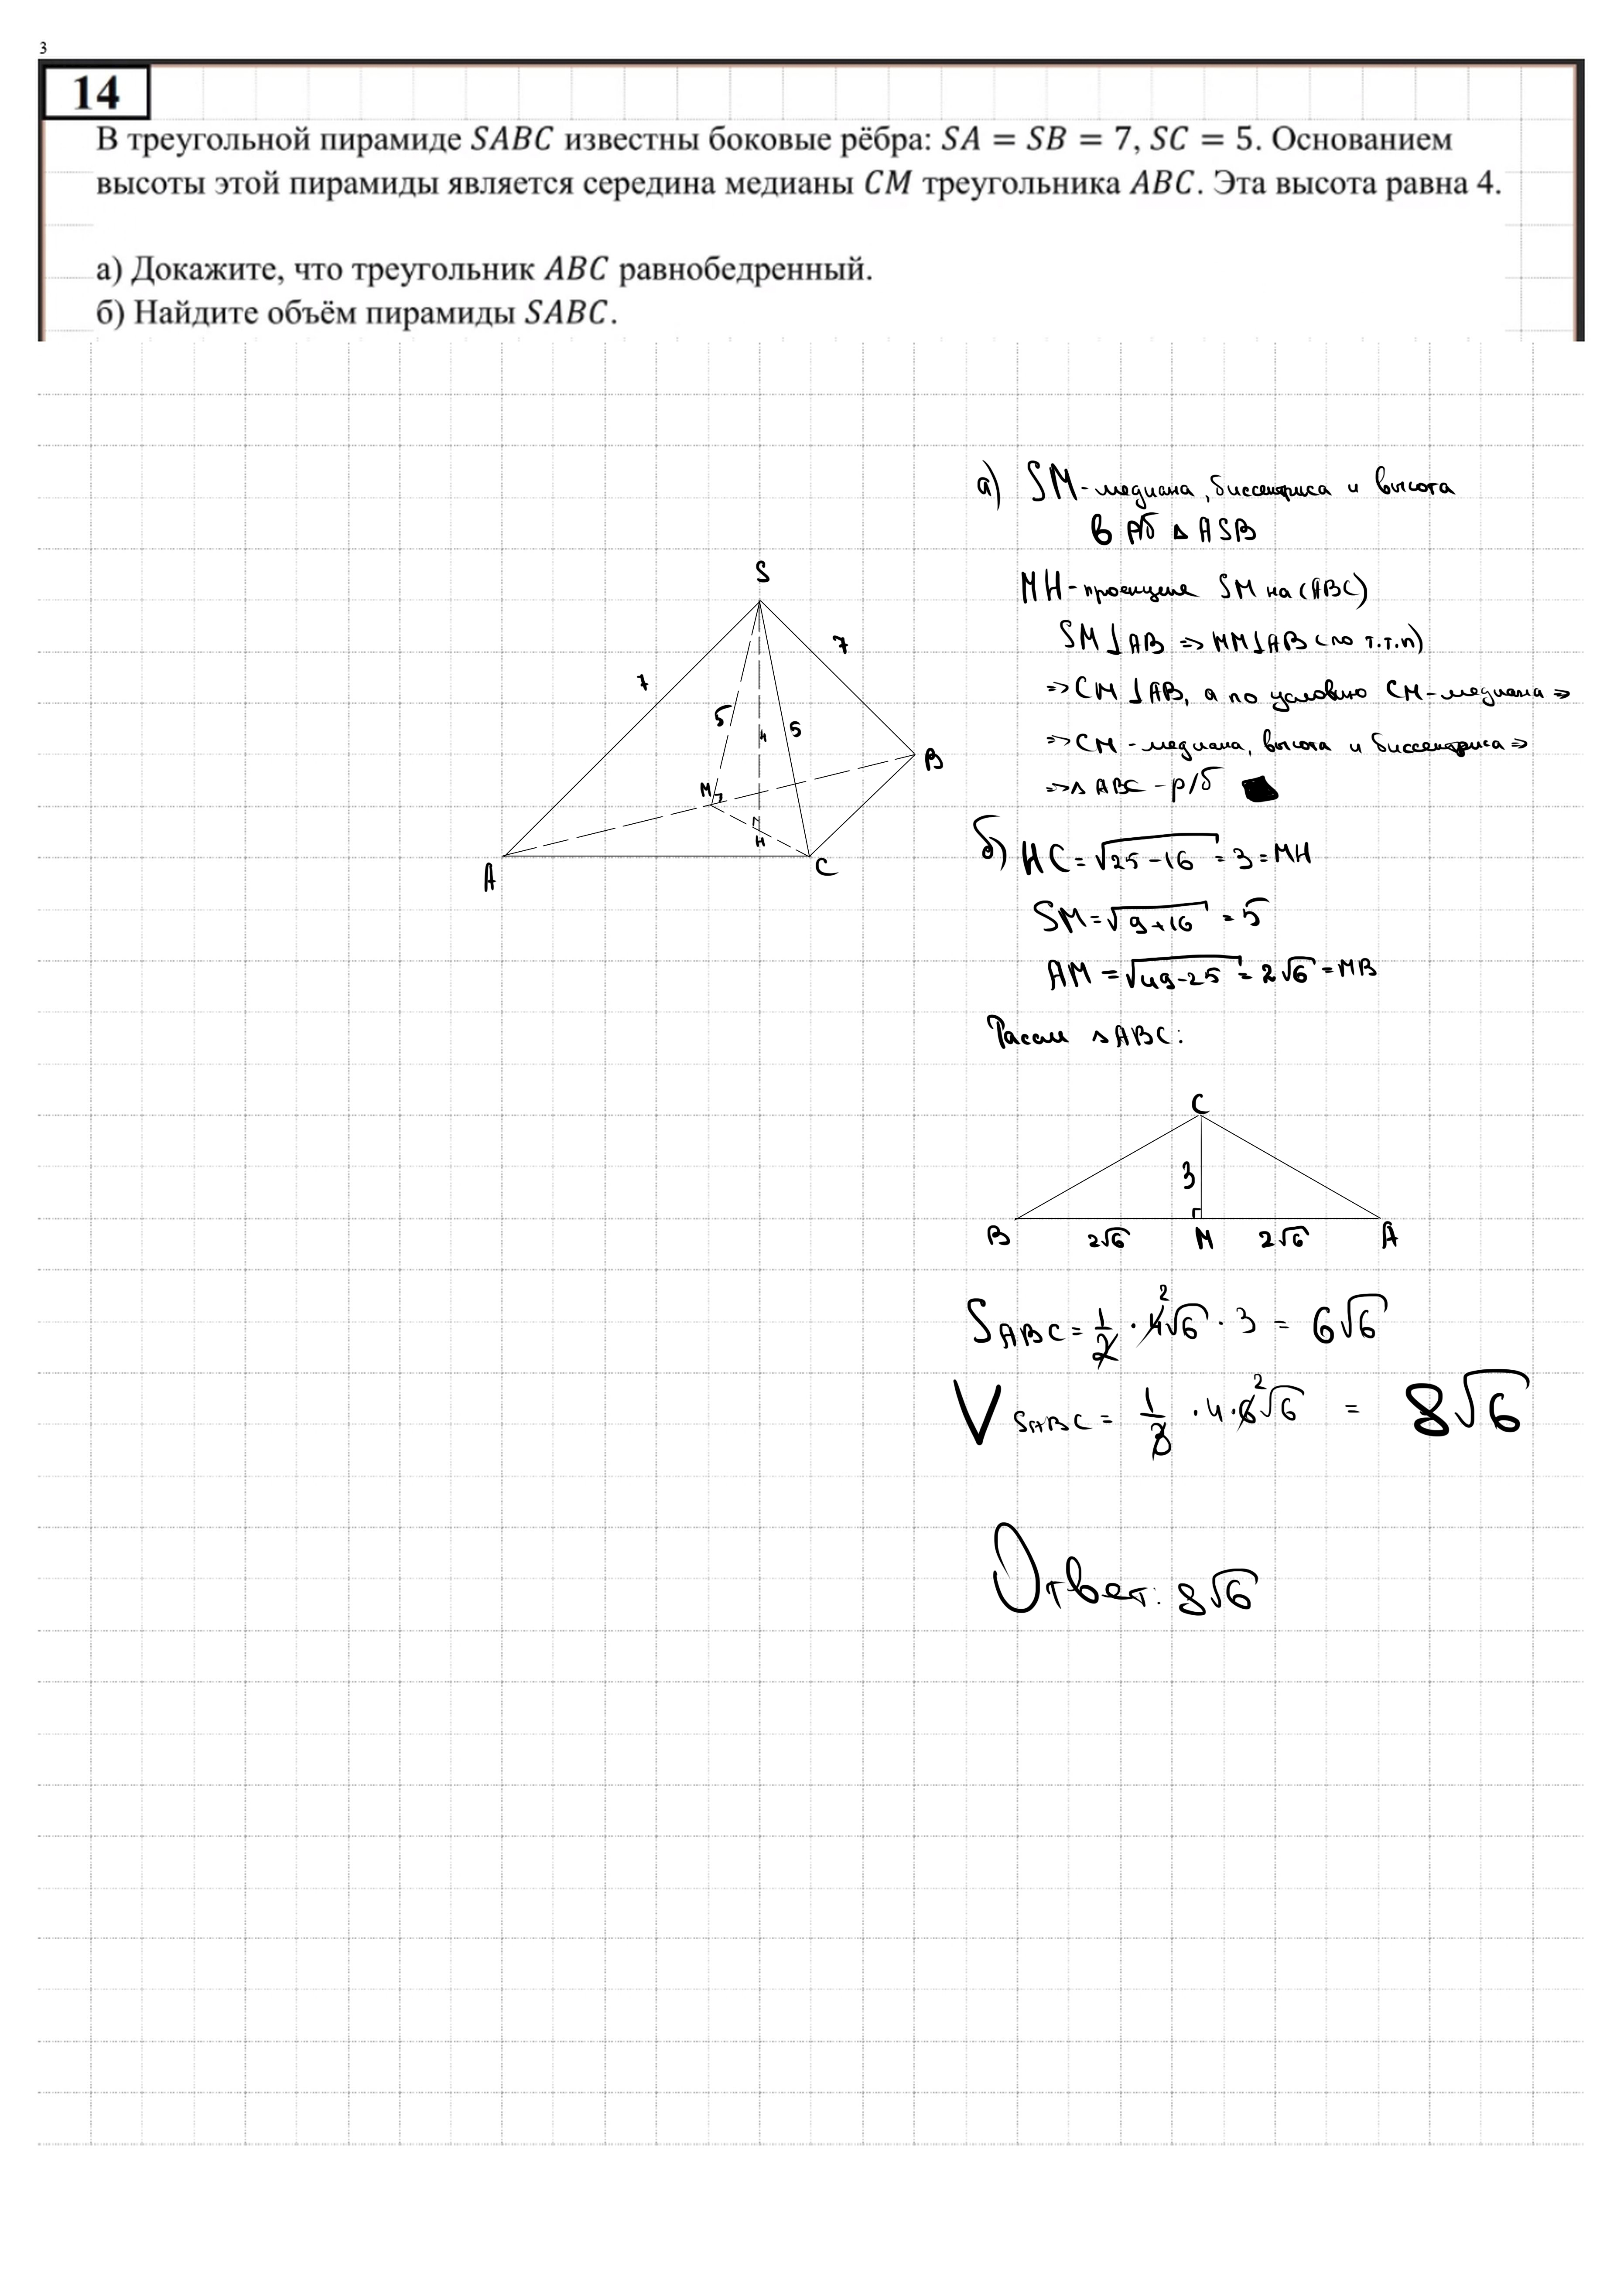 3
14
В треугольной пирамиде SABC известны боковые рёбра: SA = SB = 7, SC = 5. Основанием
высоты этой пирамиды является середина медианы CM треугольника ABC. Эта высота равна 4.
а) Докажите, что треугольник ABC равнобедренный.
б) Найдите объём пирамиды SABC.
а) SM - медиана, биссектриса и высота
в р/б △ ASB
MH - проекция SM на (ABC)
SM ⊥ AB => MM ⊥ AB (по т.т.п)
=> CM ⊥ AB, а по условию CM - медиана =>
=> CM - медиана, высота и биссектриса =>
=> △ ABC - р/б
S
7
7
5
4
5
M
B
H
A
C
б) HC = √25-16 = 3 = MH
SM = √9+16 = 5
AM = √49-25 = 2√6 = MB
Рассм △ABC:
C
3
B 2√6 M 2√6 A
S ABC = 1/2 · 4√6 · 3 = 6√6
2
V SABC = 1/3 · 4 · 6√6 = 8√6
2
Ответ: 8√6